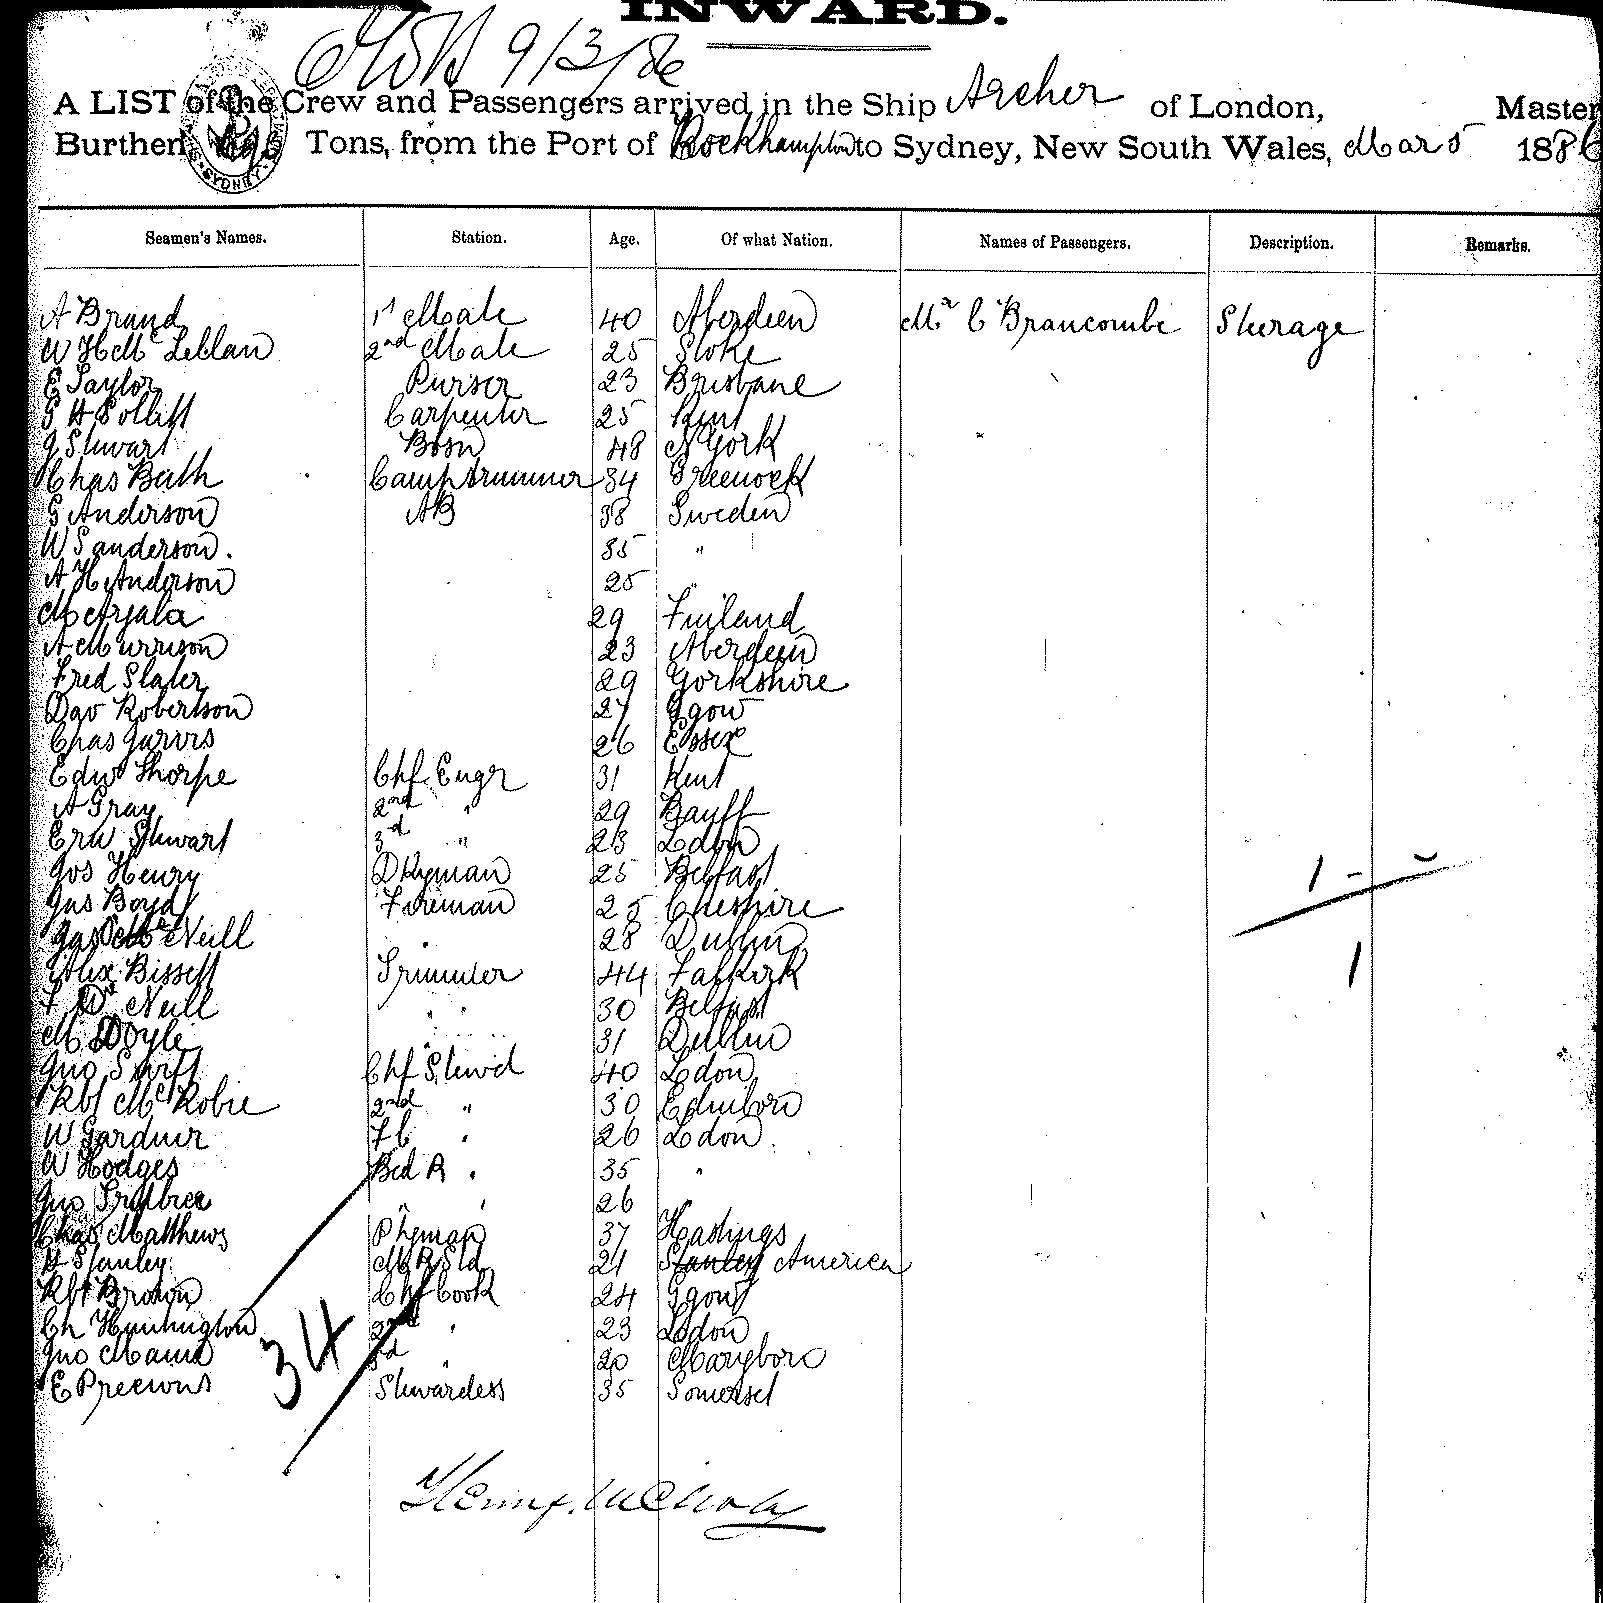 INWARD.
9/3/86
A LIST of the Crew and Passengers arrived in the Ship Archer of London, Master
Burthen Tons, from the Port of Rockhampton to Sydney, New South Wales, Mar 5 1886
SYDNEY
Seamen's Names. Station. Age. Of what Nation. Names of Passengers. Description. Remarks.
A Brand 1st Mate 40 Aberdeen Mr C Brancombe Steerage
W H Mc Leblan 2nd Mate 25 Stoke
E Taylor Purser 23 Brisbane
G H Pollitt Carpenter 25 Kent
J Stewart Bosn 48 N York
Chas Bath Lamptrimmer 34 Greenock
G Anderson AB 38 Sweden
W Sanderson. 35 "
A H Anderson 25 "
M Arjala 29 Finland
A Murrison 23 Aberdeen
Fred Slater 29 Yorkshire
Dav Robertson 27 Ggow
Chas Jarvis 26 Essex
Edw Thorpe Chf Engr 31 Kent
A Gray 2nd " 29 Banff
Ern Stewart 3rd " 23 Ldon
Jos Henry Dkyman 25 Belfast
Jas Boyd Fireman 25 Cheshire
Jas Mc Neill " 28 Dublin
Alex Bissett Trimmer 44 Falkirk
F O' Neill " 30 Belfast
M Doyle " 31 Dublin
Jno Swift Chf Stewd 40 Ldon
Rbt Mc Robie 2nd " 30 Edinboro
W Gardner F C " 26 Ldon
W Hodges Bed R " 35 "
Jno " " 26
Chas Matthews Ptyman 37 Hastings
H Stanley M R Std 21 America
Rbt Brown Chf Cook 24 Ggow
Ch Hunnington 2nd " 23 Ldon
Jno 3rd " 20 Maryboro
E Precious Stewardess 35 Somerset
34
1 -
1